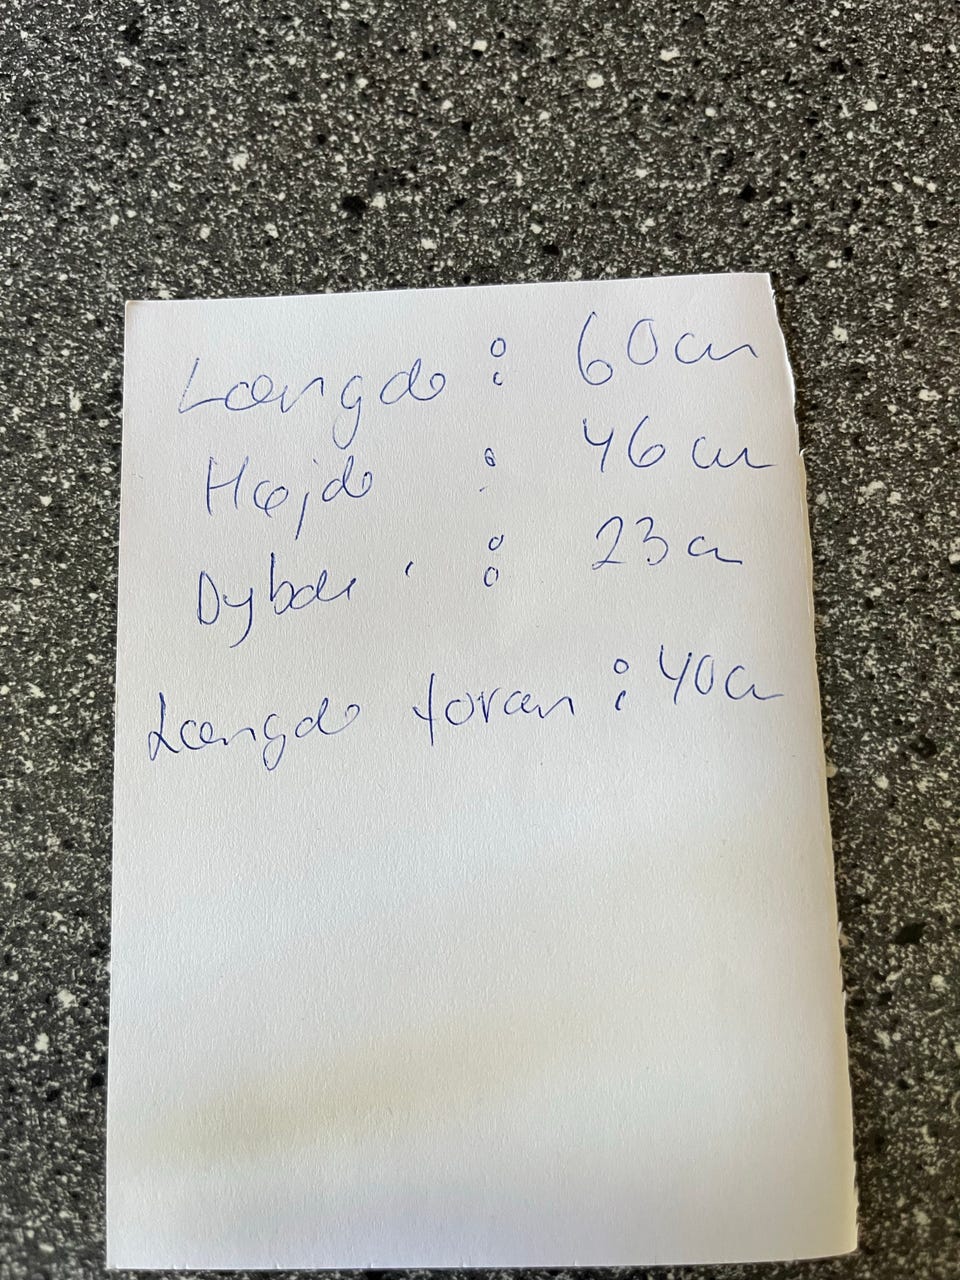 Længde : 60 cm
Højde : 46 cm
Dybde : 23 cm
Længde foran : 40 cm